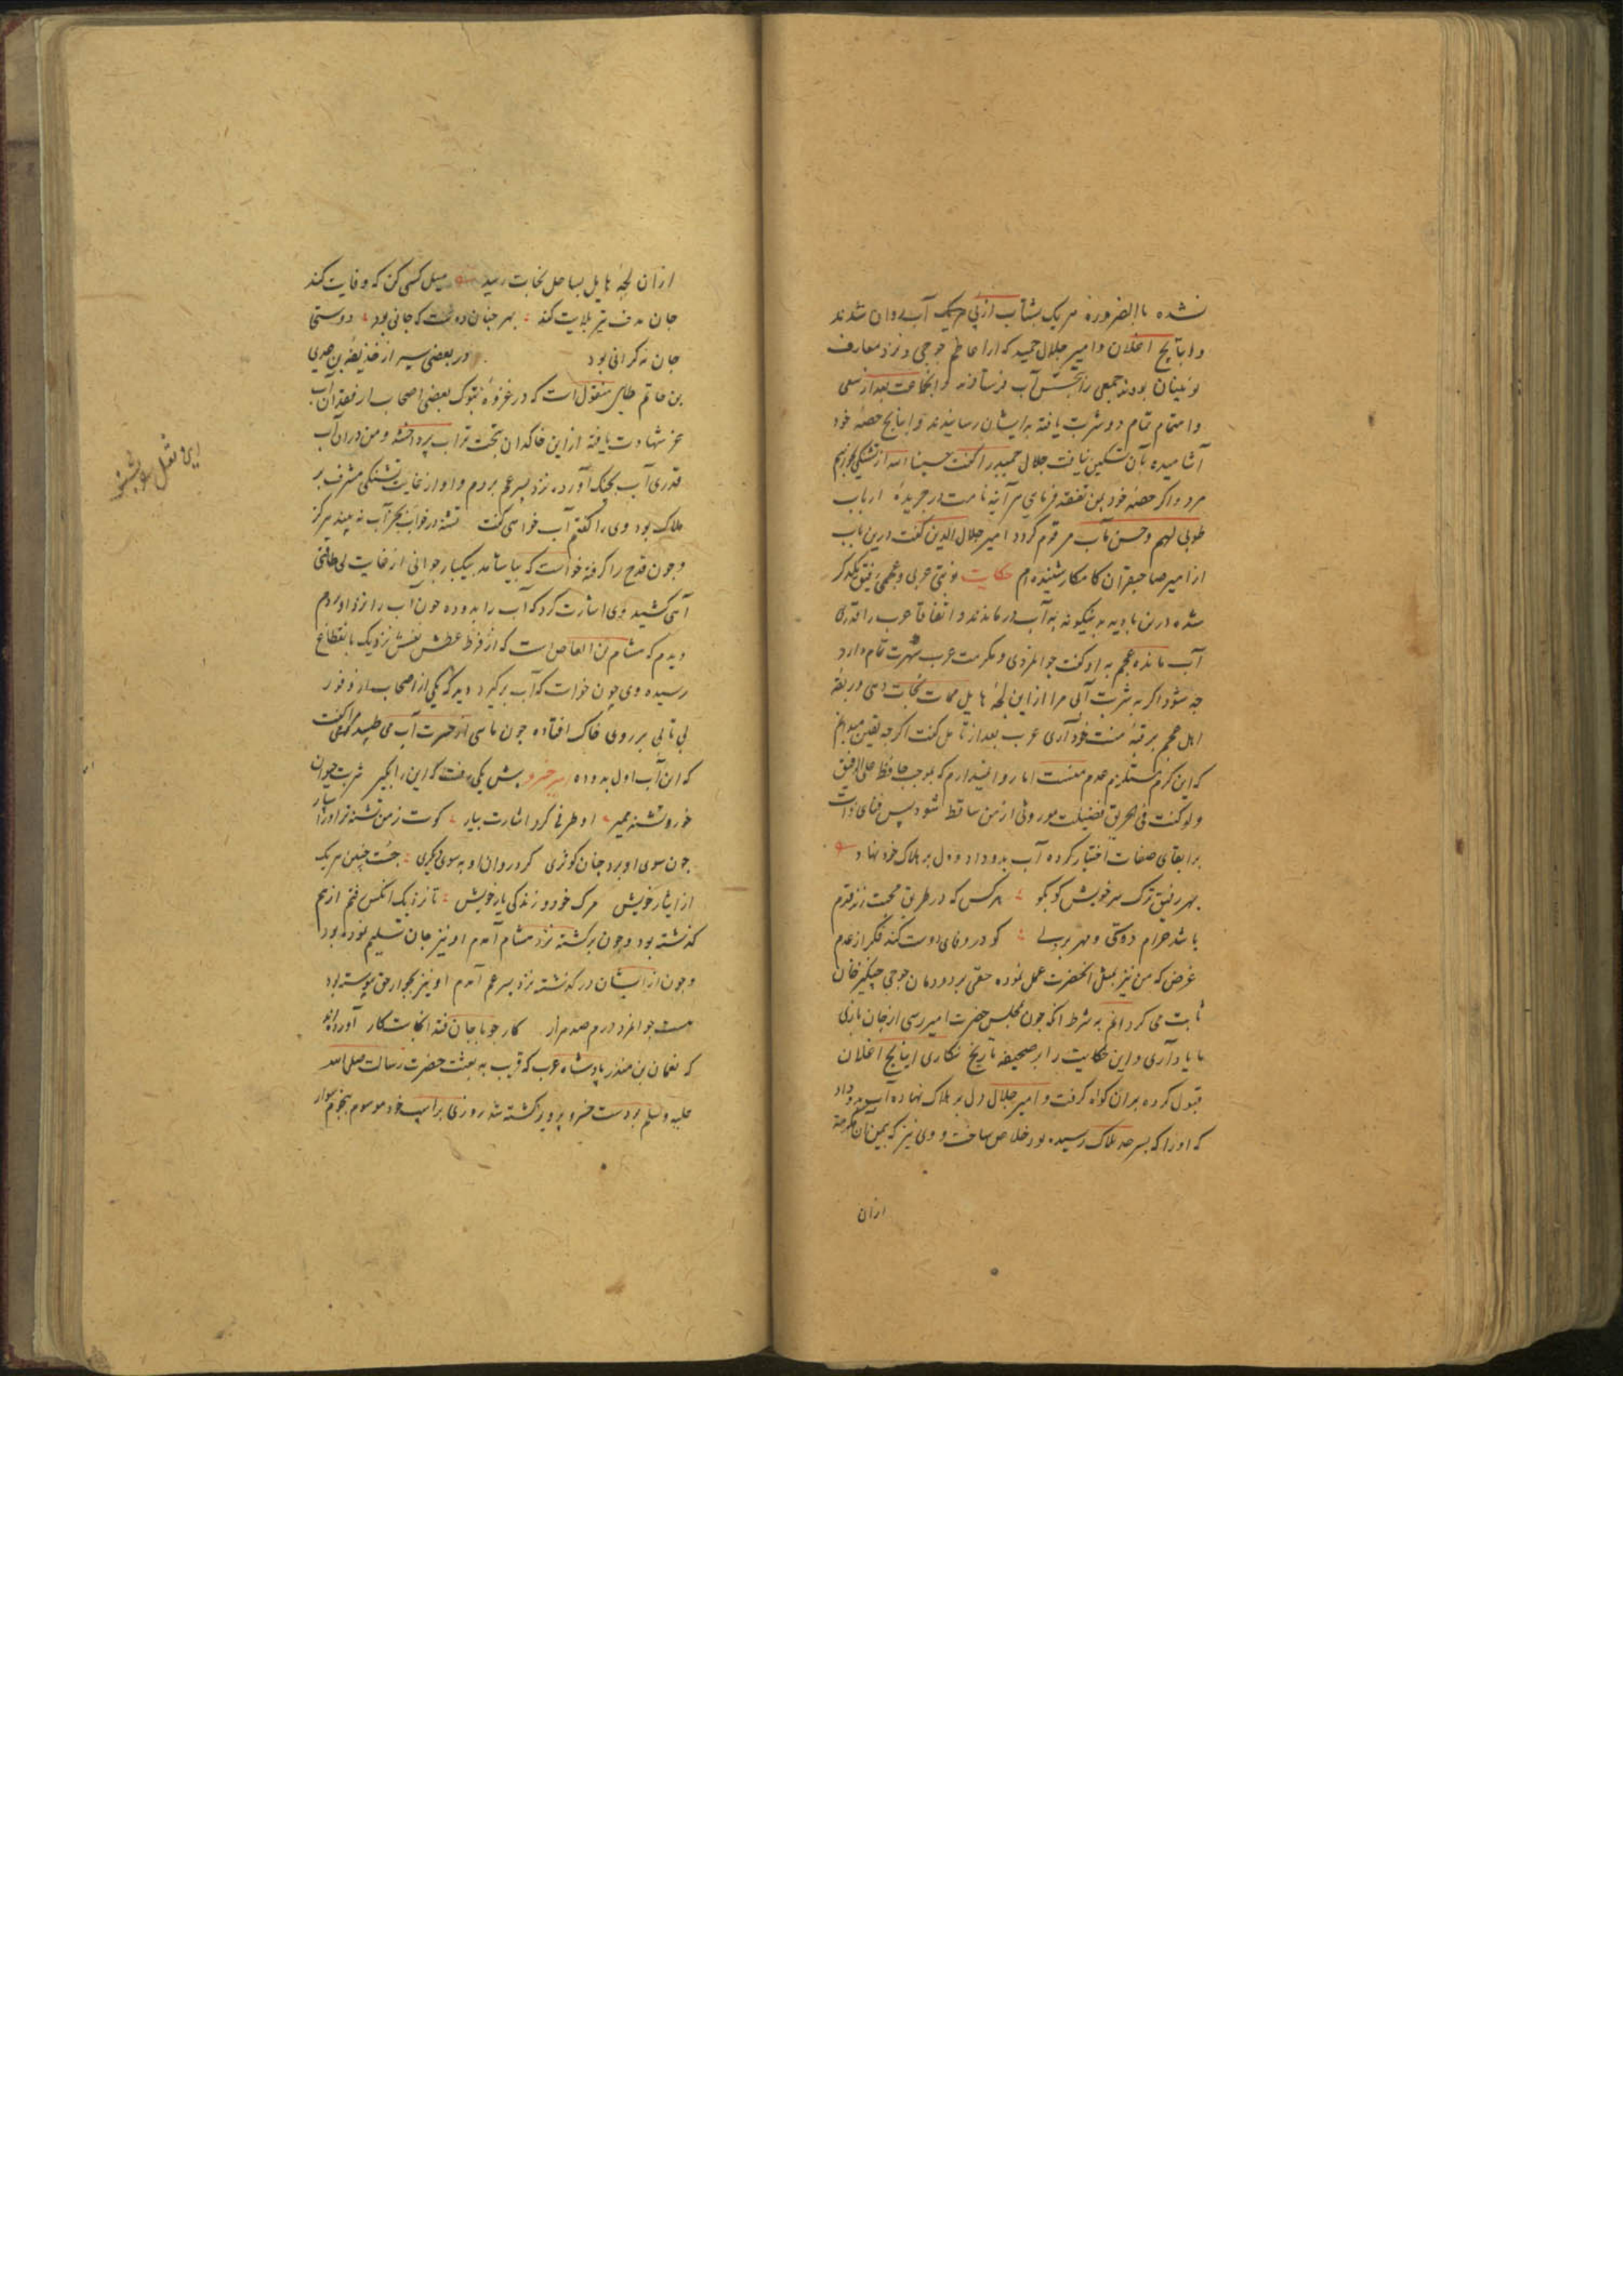 نشده بالضروره هریک بشتاب از پی یک آب روان شدند
و اباییج اغلان و امیر جلال حمید که از اعاظم جوجی و نزد معارف
نوئینان بودند جمعی را بجستن آب فرستادند و انجماعت بعد از سعی
و اهتمام تمام دو شربت یافته بدایشان رسانیدند و ابایج حصه خود
آشامیده بآن تسکین نیافت جلال حمید را گفت حسبنا الله از تشنگی خواهم
مرد و اگر حصه خود بمن تفقد فرمای هر آینه نامت در جریده ارباب
طوبی لهم و حسن مآب مرقوم گردد امیر جلال الدین گفت درین باب
از امیر صاحبقران کامکار شنیده ام حکایت نوبتی عربی و عجمی رفیق یکدگر
شده درین بادیه به بیآب درماندند و اتفاقا عرب را قدری
آب مانده عجم به او گفت جوانمردی و مکرمت عرب شهرت تمام دارد
چه شود اگر به شربت آبی مرا از این لجه هایل ممات نجات دهی و ربقه
اهل عجم بر قبه منت خود آری عرب بعد از تامل گفت اگرچه یقین میدانم
که این کرم مستلزم عدم منست اما روا نمیدارم که بموجب حافظ علی الرفیق
ولو کنت فی الحریق فضیلت موروثی از من ساقط شود پس فنای ذات
بر ابقای صفات اختیار کرده آب بدو داد و دل بر هلاک خود نهاد
بهر رفیق ترک سر خویش گو بگو هر کس که در طریق محبت زند قدم
باشد حرام دوستی و مهر بر دلی کو در وفای دوست کند فکر از عدم
غرض که من نیز بمثل انحضرت عمل نموده حقی بر دودمان جوجی چنگیز خان
ثابت می گردانم به شرط آنکه چون بمجلس حضرت امیر رسی از جان بازی
ما یاد آری و این حکایت را بر صحیفه تاریخ نگاری ابایج اغلان
قبول کرده بران گواه گرفت و امیر جلال دل بر هلاک نهاده آب بدو داد
که او را که بسر حد هلاک رسیده بود خلاص ساخت و وی نیز که بیمن آن مکرمت
ازان
ازان لجه هایل بساحل نجات رسید میل کسی کن که وفایت کند
جان هدف تیر بلایت کند بهر چنان دوست که جانی بود دوستی
جان نه گرانی بود در بعضی سیر از حذیفة بن عدی
بن حاتم طای منقول است که در غزوه تبوک بعضی اصحاب از فقدان آب
عز شهادت یافته از این خاکدان بتخت تراب پرداختند و من دران آب
قدری آب بچنگ آورده نزد پسر عم بردم و او از غایت تشنگی مشرف بر
هلاک بود وی را گفتم آب خواهی گفت تشنه در خواب بجز آب نه بیند هرگز
و چون قدح را گرفته خواست که بیاشامد بیکبار جوانی از غایت بی طاقتی
آهی کشید وی اشارت کرد که آب را بدو ده چون آب را نزد او بردم
دیدم که هشام بن العاص است که از فرط عطش نفسش نزدیک بانقطاع
رسیده وی چون خواست که آب برگیرد دید که یکی از اصحاب از وفور
بی تابی بر روی خاک افتاده چون ماهی از حسرت آب می طپید مرا گفت
که این آب اول بدو ده امیر خسرو پیش یکی رفت که این را بگیر شربت حیوان
خور و تشنه ممیر او طرفی کرد اشارت بیار کوست ز من تشنه تر او را سپار
چون سوی او برد چنان گوهری کرد روان او به سوی دیگری جست چنین هریک
از ایثار خویش مرگ خود و زندگی یار خویش تا نزدیک انکس رفتم از هم
گذشته بود و چون برگشته نزد هشام آمدم او نیز جان تسلیم نموده بود
و چون از ایشان در گذشته نزد پسر عم آمدم او نیز بجوار حق پیوسته بود
هست جوانمرد درم صد هزار کار چو با جان فتد انجاست کار آورده اند
که نعمان بن منذر پادشاه عرب که قریب به بعثت حضرت رسالت صلی الله
علیه وسلم بر دست خسرو پرویز کشته شد روزی بر اسپ خود موسوم بیحموم سوار
این نقل بشنو